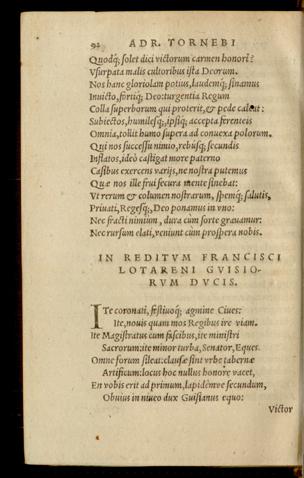 92 ADR. TORNEBI
Quodq́; solet dici victorum carmen honori?
Vsurpata malis cultoribus ista Deorum.
Nos hanc gloriolam potius, laudemq́; sinamus
Inuicto, fortiq́; Deo: turgentia Regum
Colla superborum qui proterit, & pede calcat:
Subiectos, humilesq́;, ipsiq́; accepta ferenteis
Omnia, tollit humo supera ad conuexa polorum.
Qui nos successu nimio, rebúsq́; secundis
Inflatos, ideò castigat more paterno
Casibus exercens varijs, ne nostra putemus
Quæ nos ille frui secura mente sinebat:
Vt rerum & columen nostrarum, spemq́; salutis,
Priuati, Regesq́;, Deo ponamus in vno:
Nec fracti nimium, dura cùm sorte grauamur:
Nec rursum elati, veniunt cùm prospera nobis.
IN REDITVM FRANCISCI
LOTARENI GVISIO-
RVM DVCIS.
ITe coronati, festiuoq́; agmine Ciues:
Ite, nouis quam mos Regibus ire viam.
Ite Magistratus cum fascibus, ite ministri
Sacrorum: ite minor turba, Senator, Eques.
Omne forum sileat: clausæ sint vrbe tabernæ
Artificum: locus hoc nullus honore vacet,
En vobis erit ad primum, lapidémve secundum,
Obuius in niueo dux Guisianus equo:
Victor